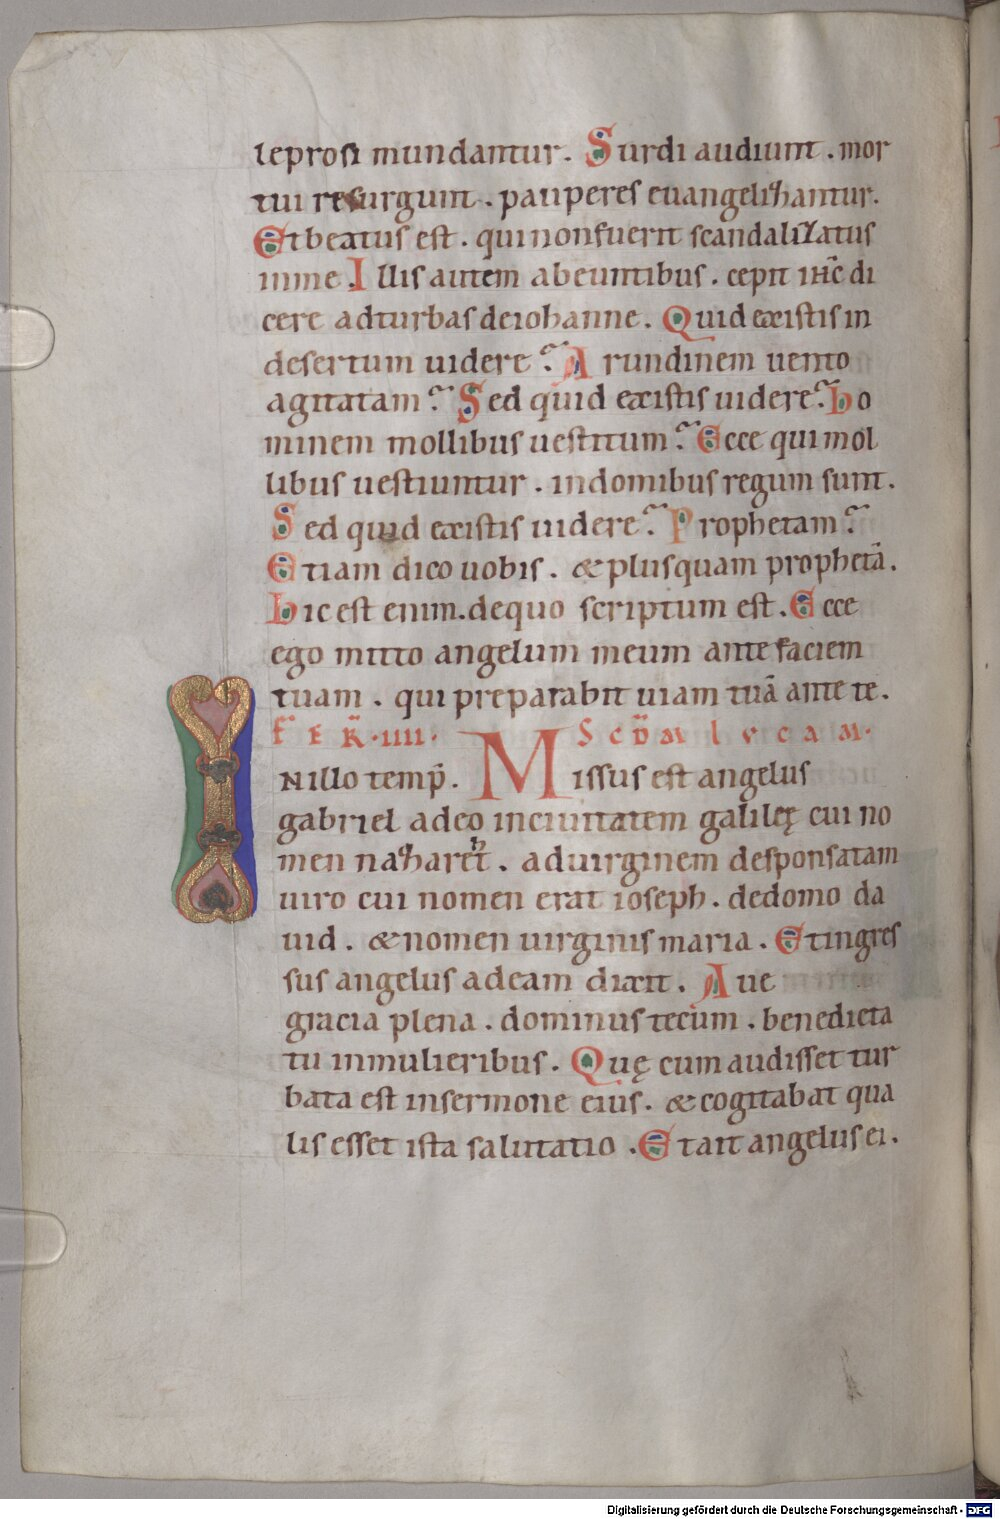 leprosi mundantur. Surdi audiunt. mor
tui resurgunt. pauperes euangelizantur.
Et beatus est. qui non fuerit scandalizatus
in me. Illis autem abeuntibus. cepit ihc̄ di
cere ad turbas de iohanne. Quid existis in
desertum uidere? Arundinem uento
agitatam? Sed quid existis uidere? ho
minem mollibus uestitum? Ecce qui mol
libus uestiuntur. in domibus regum sunt.
Sed quid existis uidere? Prophetam?
Etiam dico uobis. & plus quam prophetā.
Hic est enim. de quo scriptum est. Ecce
ego mitto angelum meum ante faciem
tuam. qui preparabit uiam tuā ante te.
FER̄. IIII. SCD̄M LVCAM.
IN illo temp̄. Missus est angelus
gabriel a deo in ciuitatem galileę cui no
men nazareth. ad uirginem desponsatam
uiro cui nomen erat ioseph. de domo da
uid. & nomen uirginis maria. Et ingres
sus angelus ad eam dixit. Aue
gracia plena. dominus tecum. benedicta
tu in mulieribus. Quę cum audisset tur
bata est in sermone eius. & cogitabat qua
lis esset ista salutatio. Et ait angelus ei.
Digitalisierung gefördert durch die Deutsche Forschungsgemeinschaft - DFG